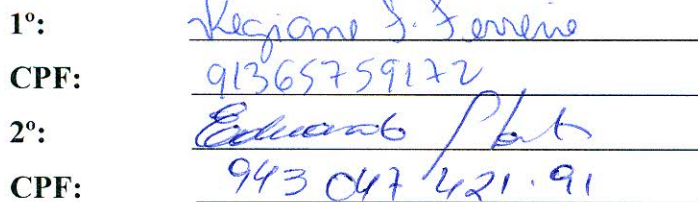 1º: Regiane F. Ferreira
CPF: 91365759172
2º: Eduardo
CPF: 943 047 421.91